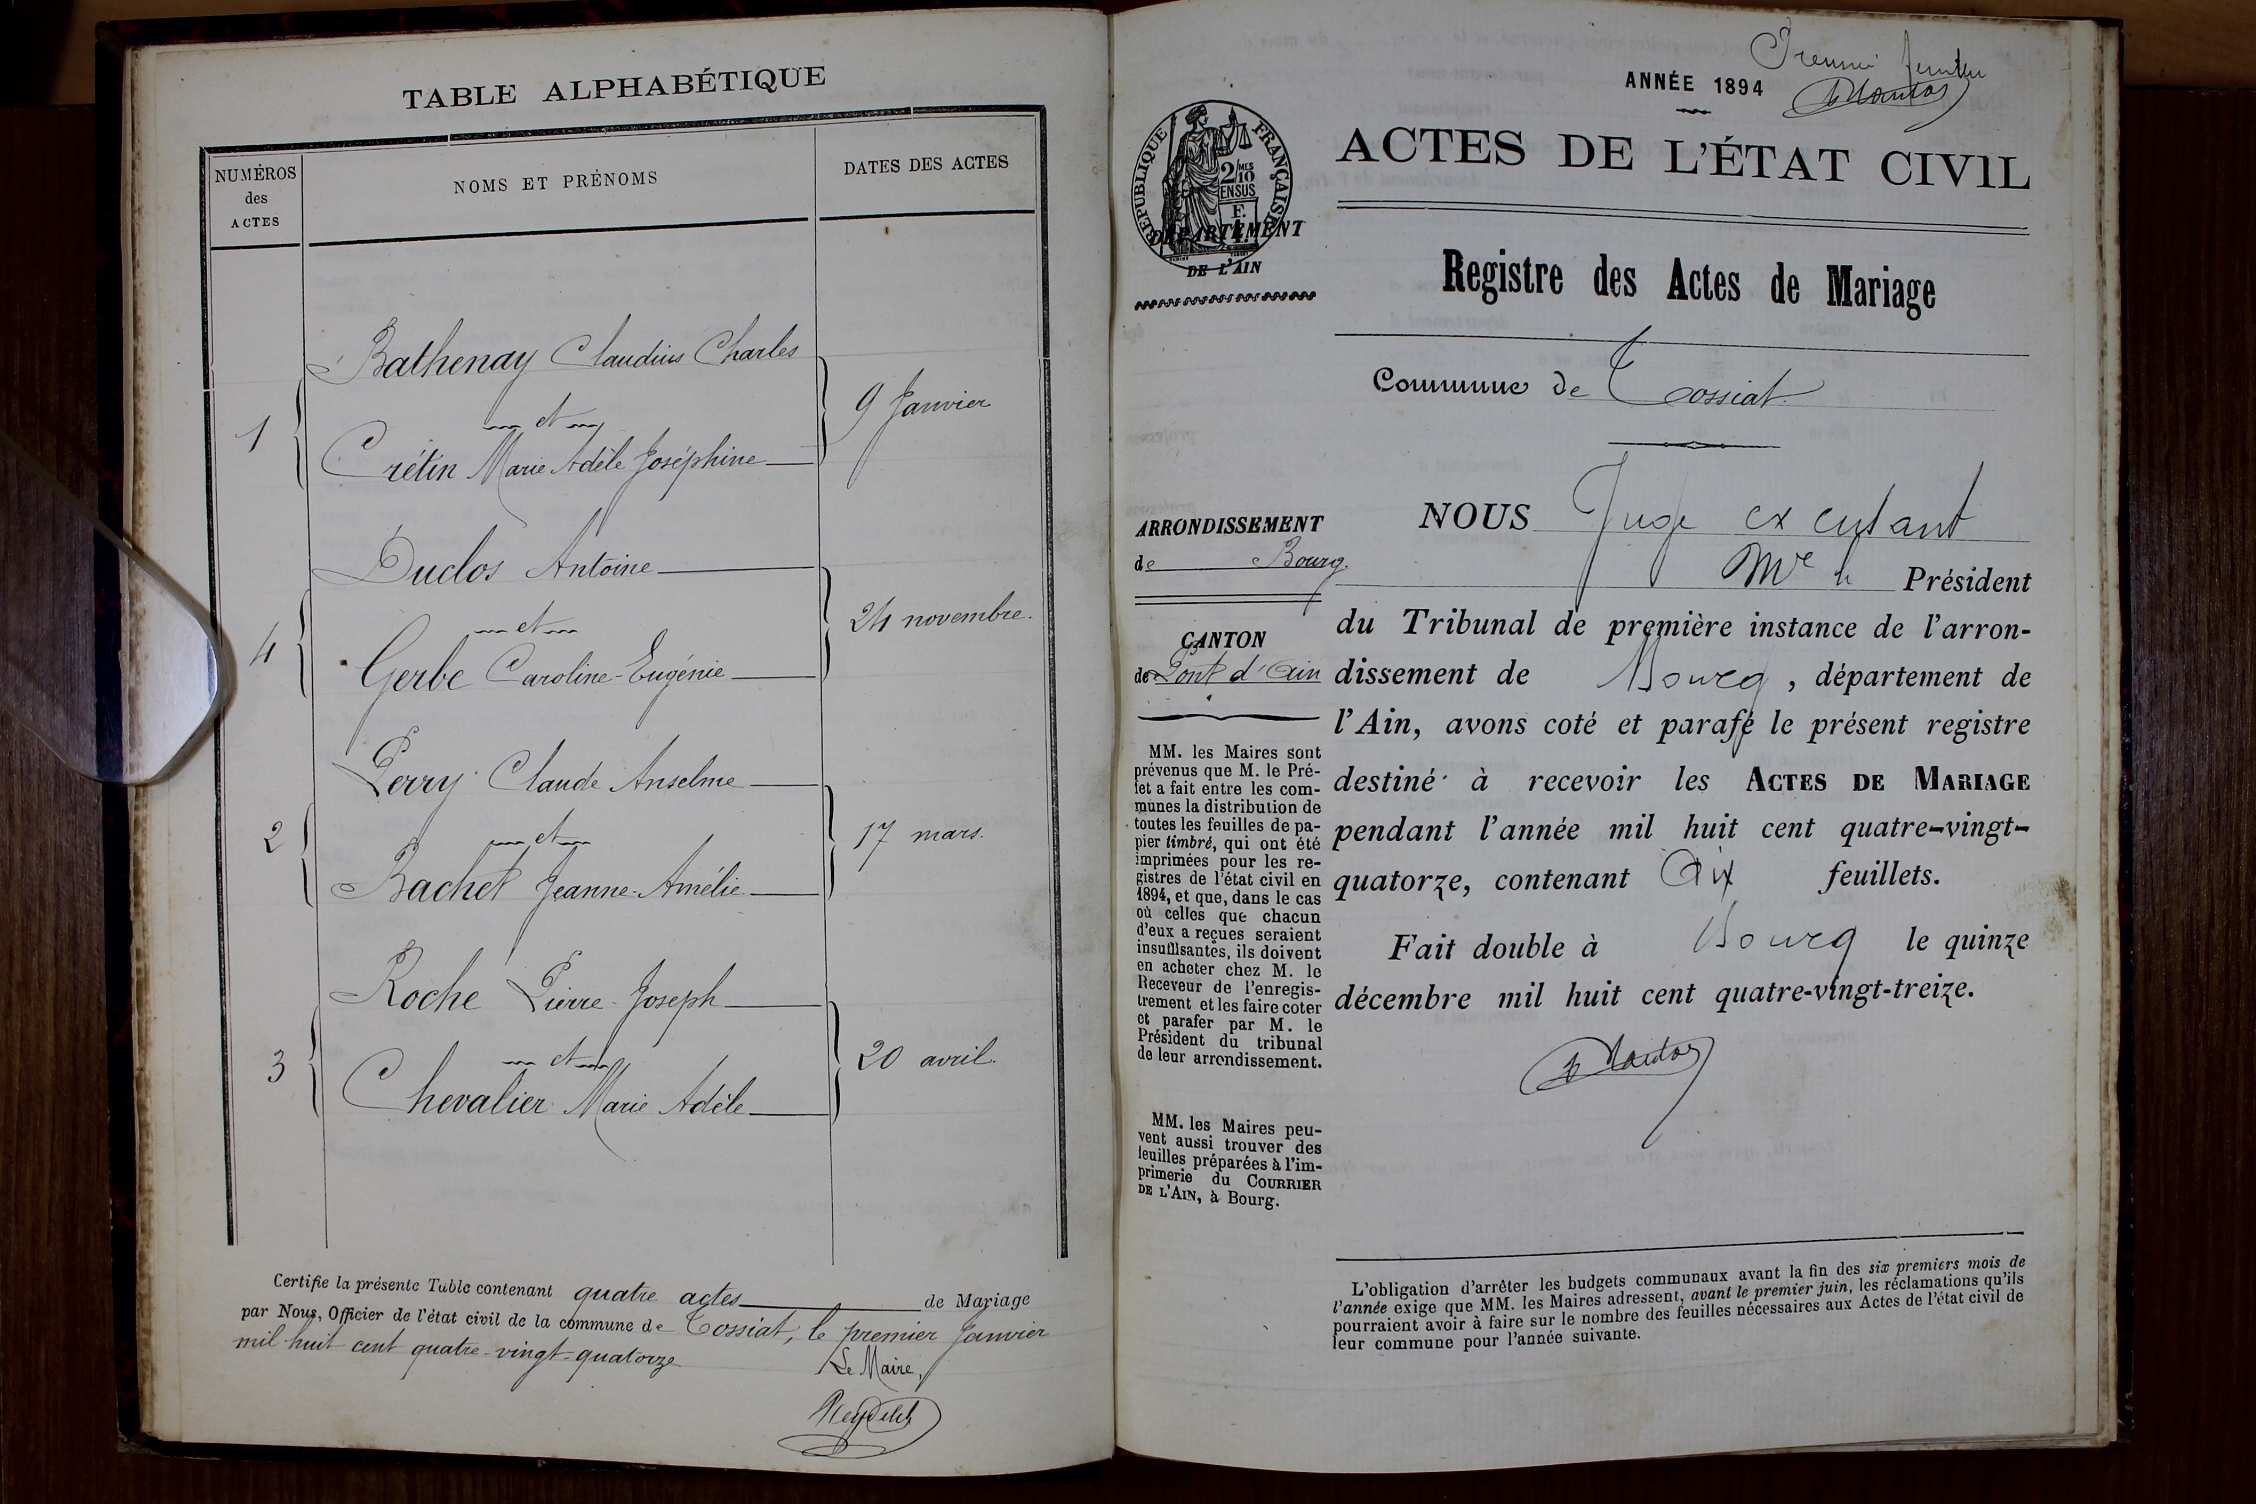 TABLE ALPHABÉTIQUE
NUMÉROS
des
ACTES
NOMS ET PRÉNOMS
DATES DES ACTES
Bathenay Claudius Charles
1
et
9 Janvier
Crétin Marie Adèle Joséphine
Duclos Antoine
4
et
24 novembre.
Gerbe Caroline-Eugénie
Perry Claude Anselme
2
et
17 mars.
Bachet Jeanne-Amélie
Roche Pierre-Joseph
3
et
20 avril.
Chevalier Marie Adèle
Certifie la présente Table contenant quatre actes de Mariage
par Nous, Officier de l'état civil de la commune de Tossiat, le premier Janvier
mil huit cent quatre-vingt-quatorze
Le Maire,
Premier feuillet
ANNÉE 1894
ACTES DE L'ÉTAT CIVIL
RÉPUBLIQUE FRANÇAISE
2/10 MES
EN SUS
DÉPARTEMENT
DE L'AIN
Registre des Actes de Mariage
Commune de Tossiat
ARRONDISSEMENT
de Bourg.
CANTON
de Pont d'Ain
MM. les Maires sont
prévenus que M. le Pré-
fet a fait entre les com-
munes la distribution de
toutes les feuilles de pa-
pier timbré, qui ont été
imprimées pour les re-
gistres de l'état civil en
1894, et que, dans le cas
où celles que chacun
d'eux a reçues seraient
insuffisantes, ils doivent
en acheter chez M. le
Receveur de l'enregis-
trement et les faire coter
et parafer par M. le
Président du tribunal
de leur arrondissement.
MM. les Maires peu-
vent aussi trouver des
feuilles préparées à l'im-
primerie du COURRIER
DE L'AIN, à Bourg.
NOUS Juge
Président
du Tribunal de première instance de l'arron-
dissement de Bourg, département de
l'Ain, avons coté et parafé le présent registre
destiné à recevoir les ACTES DE MARIAGE
pendant l'année mil huit cent quatre-vingt-
quatorze, contenant dix feuillets.
Fait double à Bourg le quinze
décembre mil huit cent quatre-vingt-treize.
L'obligation d'arrêter les budgets communaux avant la fin des six premiers mois de
l'année exige que MM. les Maires adressent, avant le premier juin, les réclamations qu'ils
pourraient avoir à faire sur le nombre des feuilles nécessaires aux Actes de l'état civil de
leur commune pour l'année suivante.